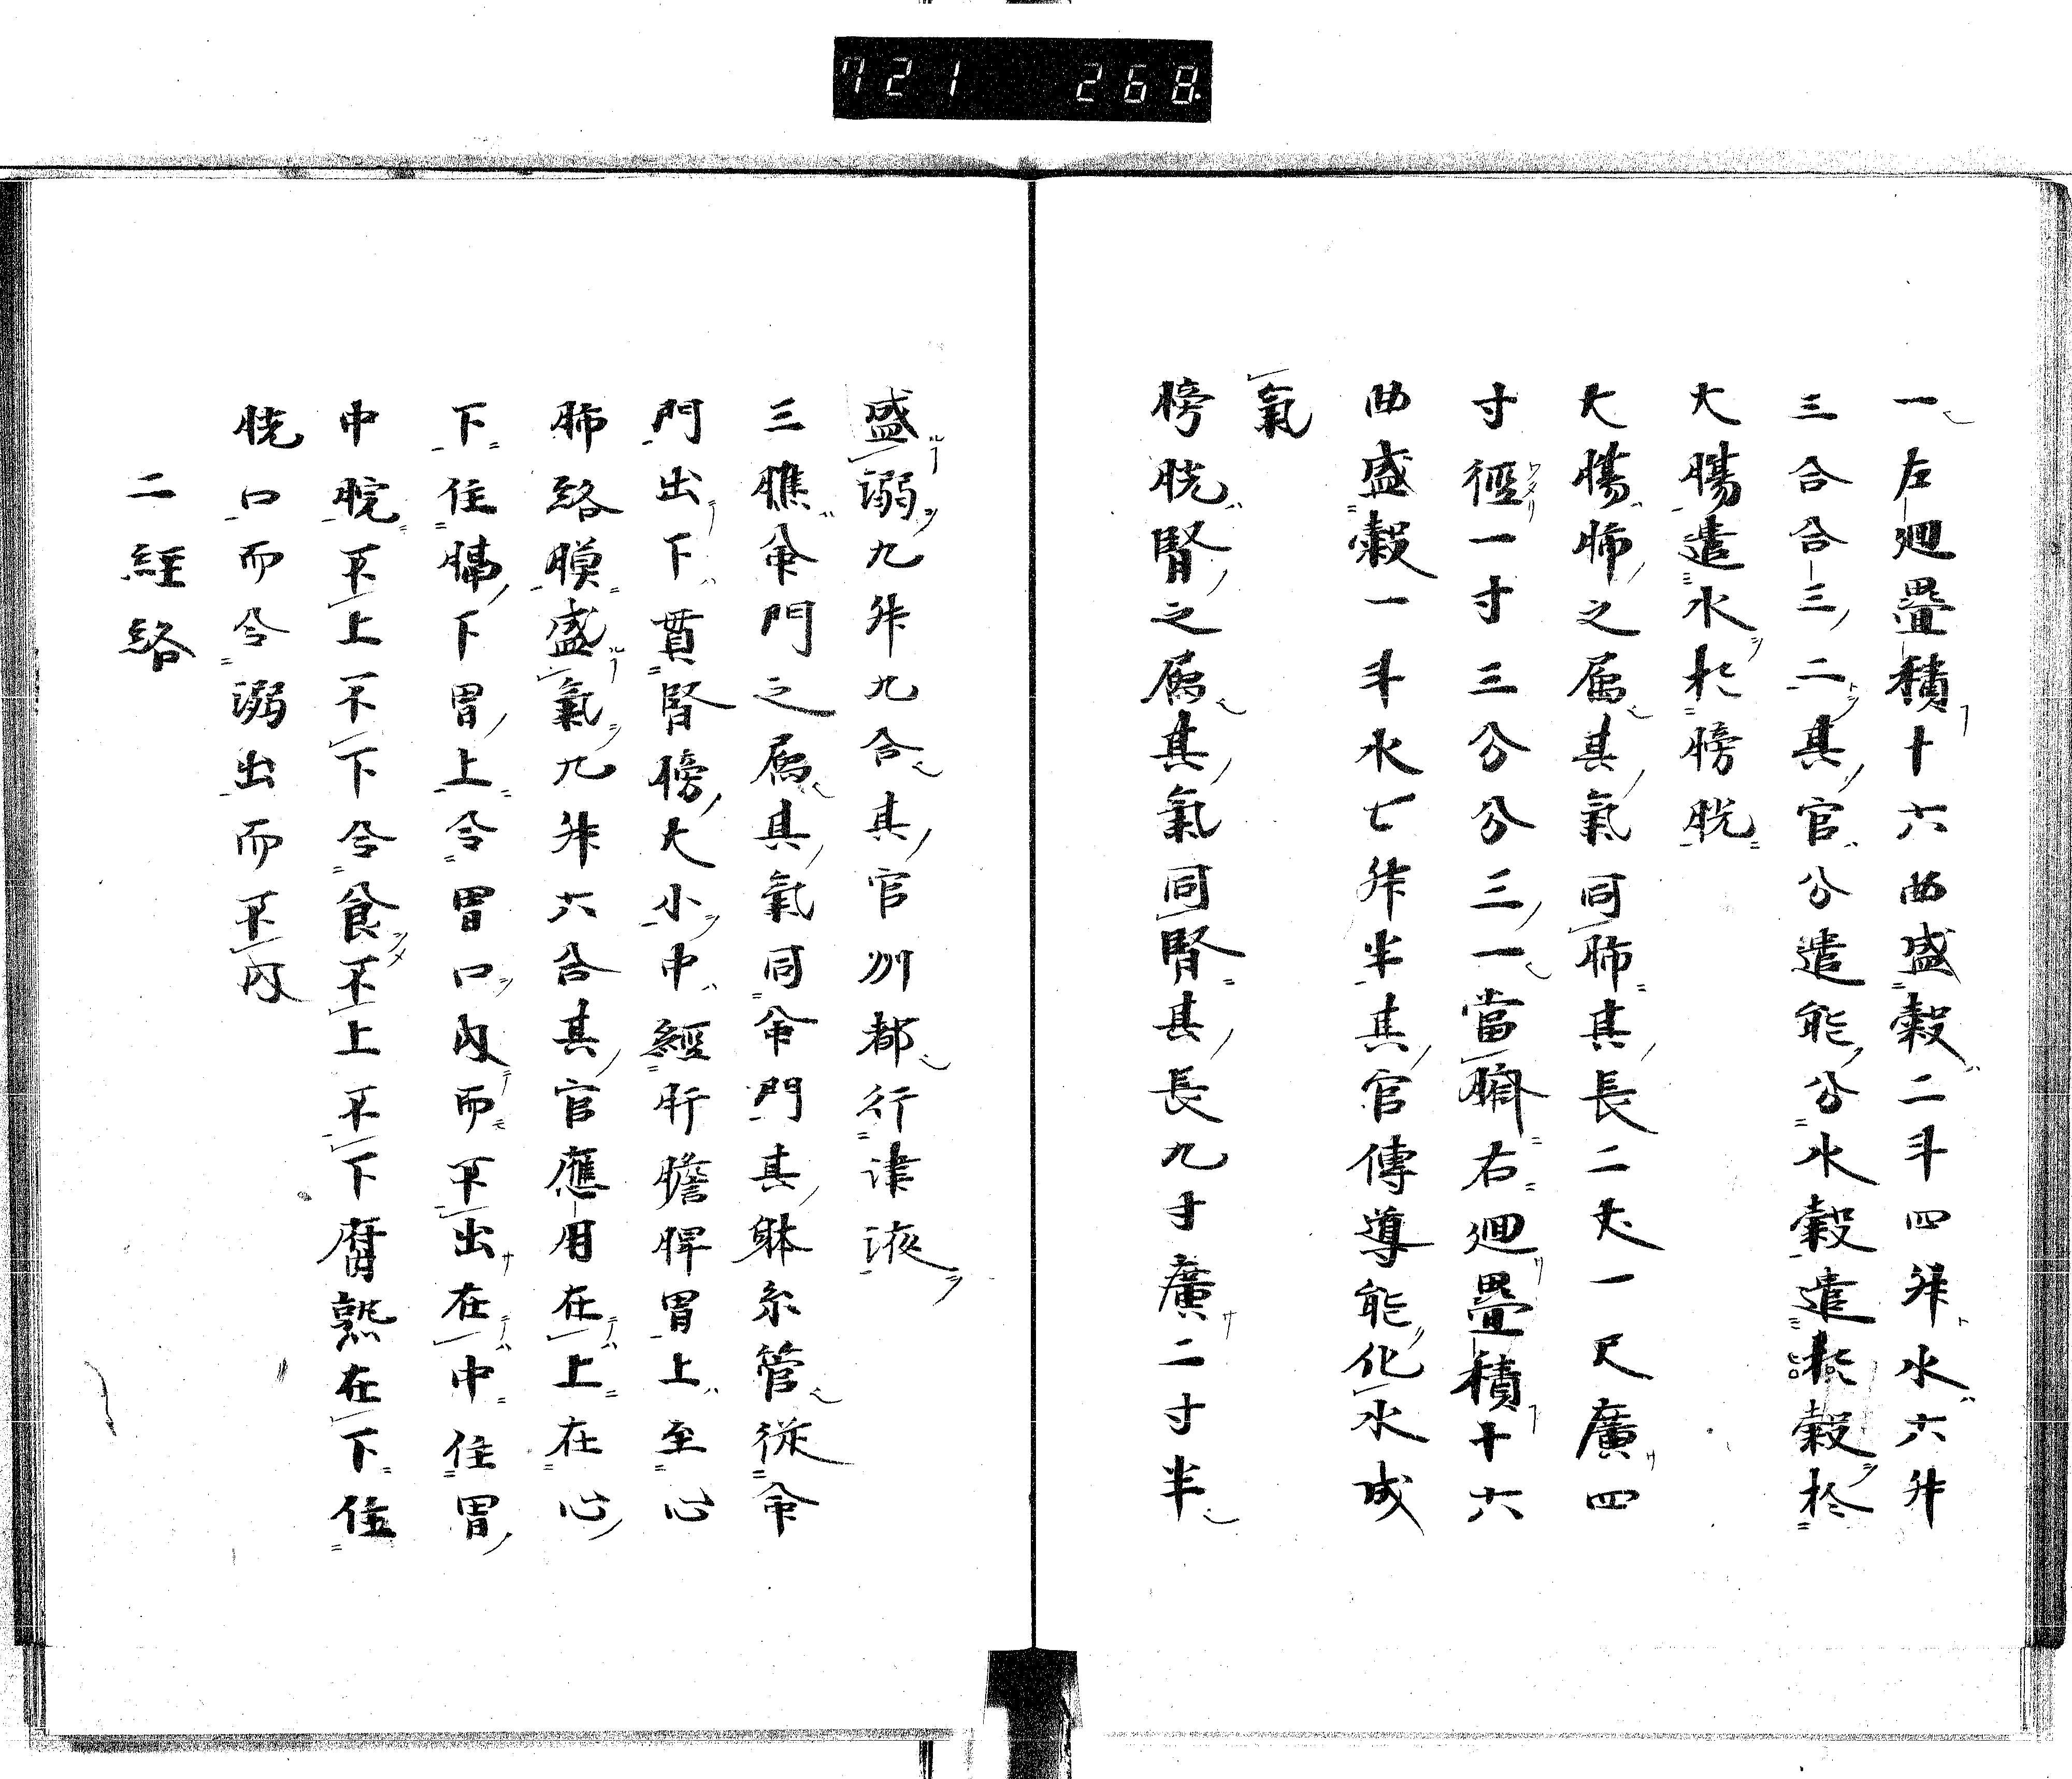 721 268
一左廻疊積十六曲盛穀二斗四升水六升
三合合三二其官分遣能分水穀遣於穀於
大膓遣水於膀胱
大膓肺之属其氣同肺其長二丈一尺廣四
寸徑一寸三分分三一當臍右廻疊積十六
曲盛穀一斗水七升半其官傳導能化水成
氣
膀胱腎之属其氣同腎其長九寸廣二寸半
盛溺九升九合其官州都行津液
三膲命門之属其氣同命門其躰糸管從命
門出下貫腎膀大小中經肝膽脾胃上至心
肺絡膜盛氣九升六合其官應用在上在心
下住膈下胃上令胃口内而不出在中住胃
中脘不上不下令食不上不下腐熟在下住
胱口而令溺出而不内
二經絡